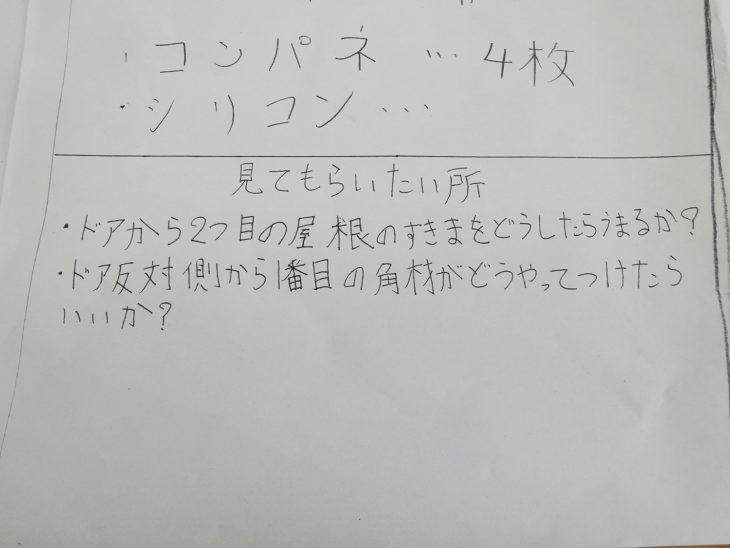 ・コンパネ … 4枚
・シリコン …
見てもらいたい所
・ドアから2つ目の屋根のすきまをどうしたらうまるか?
・ドア反対側から1番目の角材がどうやってつけたら
いいか?